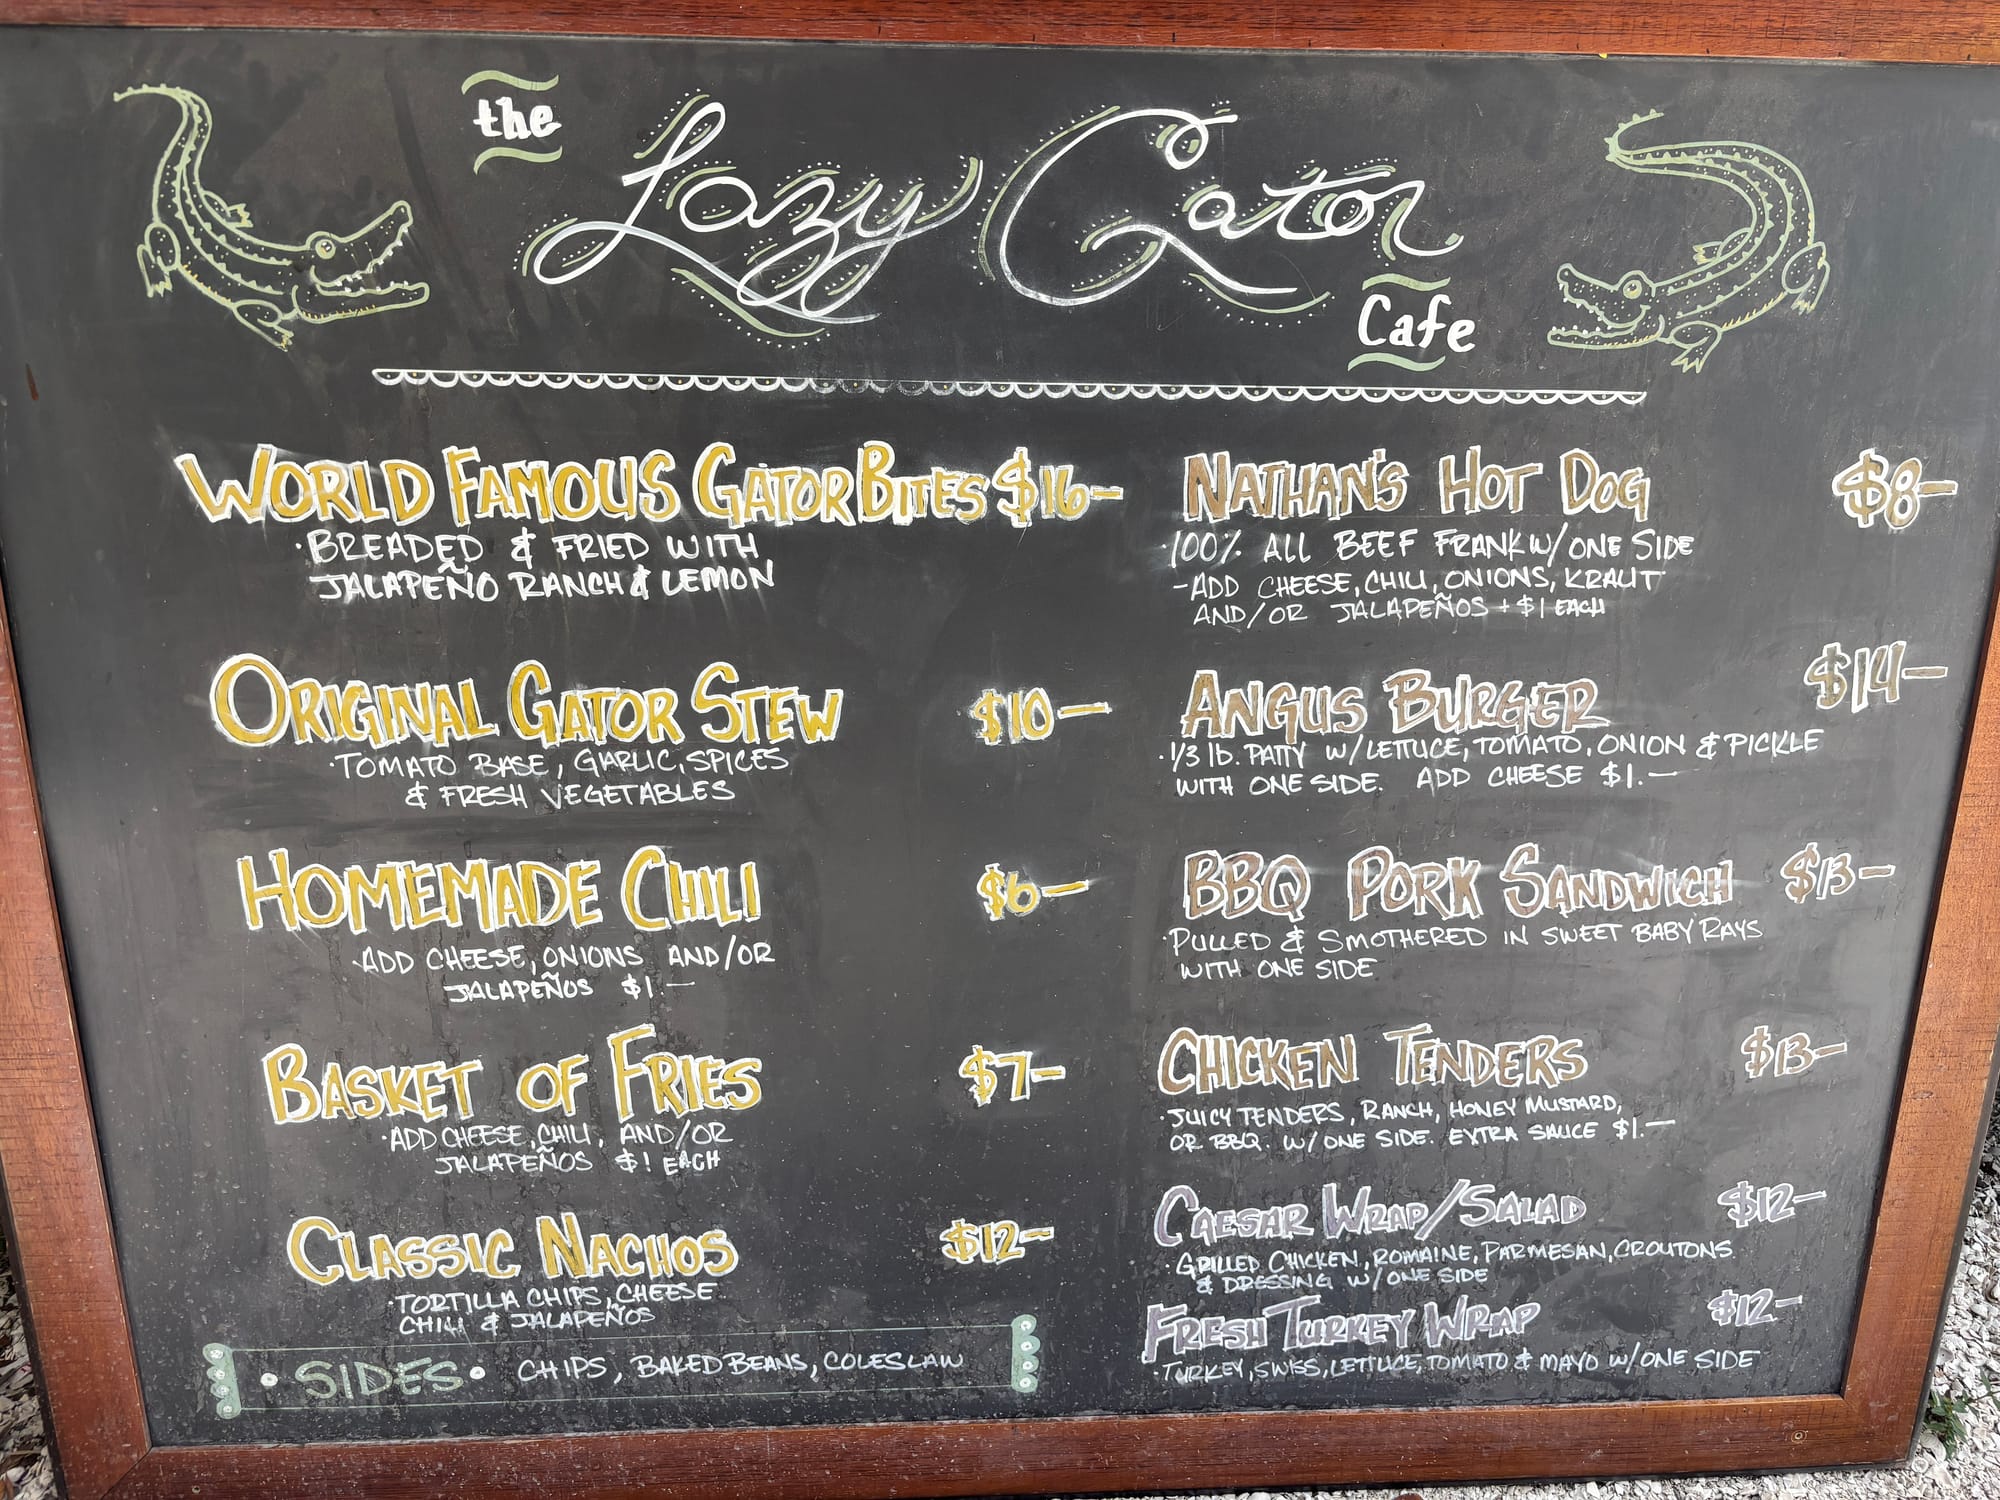 the
Lazy Gator
Cafe
WORLD FAMOUS GATOR BITES $16-
·BREADED & FRIED WITH
JALAPEÑO RANCH & LEMON
ORIGINAL GATOR STEW $10-
·TOMATO BASE, GARLIC, SPICES
& FRESH VEGETABLES
HOMEMADE CHILI $6-
·ADD CHEESE, ONIONS AND/OR
JALAPEÑOS $1-
BASKET OF FRIES $7-
·ADD CHEESE, CHILI, AND/OR
JALAPEÑOS $1 EACH
CLASSIC NACHOS $12-
·TORTILLA CHIPS, CHEESE
CHILI & JALAPEÑOS
·SIDES· CHIPS, BAKED BEANS, COLESLAW
NATHAN'S HOT DOG $8-
·100% ALL BEEF FRANK W/ONE SIDE
-ADD CHEESE, CHILI, ONIONS, KRAUT
AND/OR JALAPEÑOS + $1 EACH
ANGUS BURGER $14-
·1/3 lb. PATTY W/LETTUCE, TOMATO, ONION & PICKLE
WITH ONE SIDE. ADD CHEESE $1.-
BBQ PORK SANDWICH $13-
·PULLED & SMOTHERED IN SWEET BABY RAYS
WITH ONE SIDE
CHICKEN TENDERS $13-
·JUICY TENDERS, RANCH, HONEY MUSTARD,
OR BBQ. W/ONE SIDE. EXTRA SAUCE $1.-
CAESAR WRAP/SALAD $12-
·GRILLED CHICKEN, ROMAINE, PARMESAN, CROUTONS
& DRESSING W/ONE SIDE
FRESH TURKEY WRAP $12-
·TURKEY, SWISS, LETTUCE, TOMATO & MAYO W/ONE SIDE